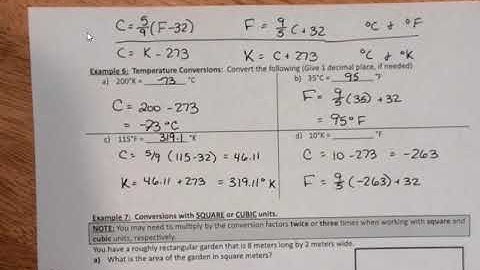 C = 5/9 (F-32)   F = 9/5 C + 32   °C & °F
C = K - 273   K = C + 273   °C & °K
Example 6: Temperature Conversions: Convert the following (Give 1 decimal place, if needed)
a) 200°K = -73 °C   b) 35°C = 95 °F
C = 200 - 273   F = 9/5 (35) + 32
= -73°C   = 95°F
c) 115°F = 319.1 °K   d) 10°K = ______ °F
C = 5/9 (115-32) = 46.11   C = 10 - 273 = -263
K = 46.11 + 273 = 319.11°K   F = 9/5 (-263) + 32
Example 7: Conversions with SQUARE or CUBIC units.
NOTE: You may need to multiply by the conversion factors twice or three times when working with square and
cubic units, respectively.
You have a roughly rectangular garden that is 8 meters long by 2 meters wide.
a) What is the area of the garden in square meters?